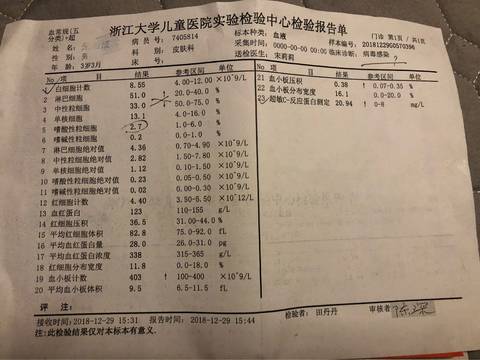 血常规(五分类)+超
浙江大学儿童医院实验检验中心检验报告单
门诊 第1页 / 共1页
姓名
病员号 7405814
标本类型: 血液
样本编号: 20181229G0570396
性别:
科别: 皮肤科
采集时间: 0000-00-00 00:00
临床诊断: 病毒感染?
年龄: 3岁3月
床号
送检医生: 宋莉莉
No 项目 结果 参考区间
1 白细胞计数 8.55 4.00-12.00 ×10^9/L
2 淋巴细胞 51.0 20.0-40.0 %
3 中性粒细胞 33.0 50.0-75.0 %
4 单核细胞 13.1 4.0-16.0 %
5 嗜酸性粒细胞 2.7 1.0-6.0 %
6 嗜碱性粒细胞 0.2 0.0-1.0 %
7 淋巴细胞绝对值 4.36 0.70-4.90 ×10^9/L
8 中性粒细胞绝对值 2.82 1.50-7.80 ×10^9/L
9 单核细胞绝对值 1.12 0.10-1.50 ×10^9/L
10 嗜酸性粒细胞绝对值 0.23 0.05-0.50 ×10^9/L
11 嗜碱性粒细胞绝对值 0.02 0.00-0.10 ×10^9/L
12 红细胞计数 4.40 3.50-5.50 ×10^12/L
13 血红蛋白 123 110-155 g/L
14 红细胞压积 36.5 31.00-44.0 %
15 平均红细胞体积 82.8 75.0-92.0 fL
16 平均血红蛋白量 28.0 26.0-31.0 pg
17 平均血红蛋白浓度 338 315-365 g/L
18 红细胞分布宽度 11.8 0.0-18.0 %
19 血小板计数 403 ↑ 100-400 ×10^9/L
20 平均血小板体积 9.5 6.5-11.5 fL
No 项目 结果 参考区间
21 血小板压积 0.38 ↑ 0.07-0.35 %
22 血小板分布宽度 16.1 0.0-20.0 %
23 超敏C-反应蛋白测定 20.94 ↑ 0-8 mg/L
评 注:
接收时间: 2018-12-29 15:31 报告时间: 2018-12-29 15:44
检验者: 田丹丹
审核者
此检验结果仅对本标本有意义.